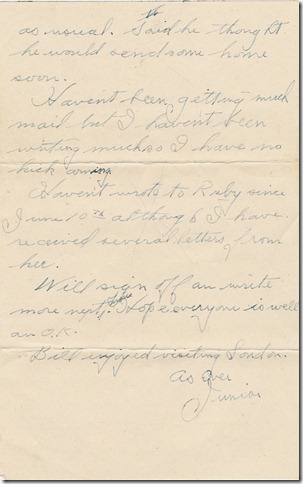 as usual. Said he thought
he would send some home
soon.
Haven't been getting much
mail but I haven't been
writing much so I have no
kick coming
Havent wrote to Ruby since
June 10th although I have
received several letters from
her.
Will sign off an write
more next time. Hope everyone is well
an O.K.
Bill enjoyed visiting London.
As Ever
Junior